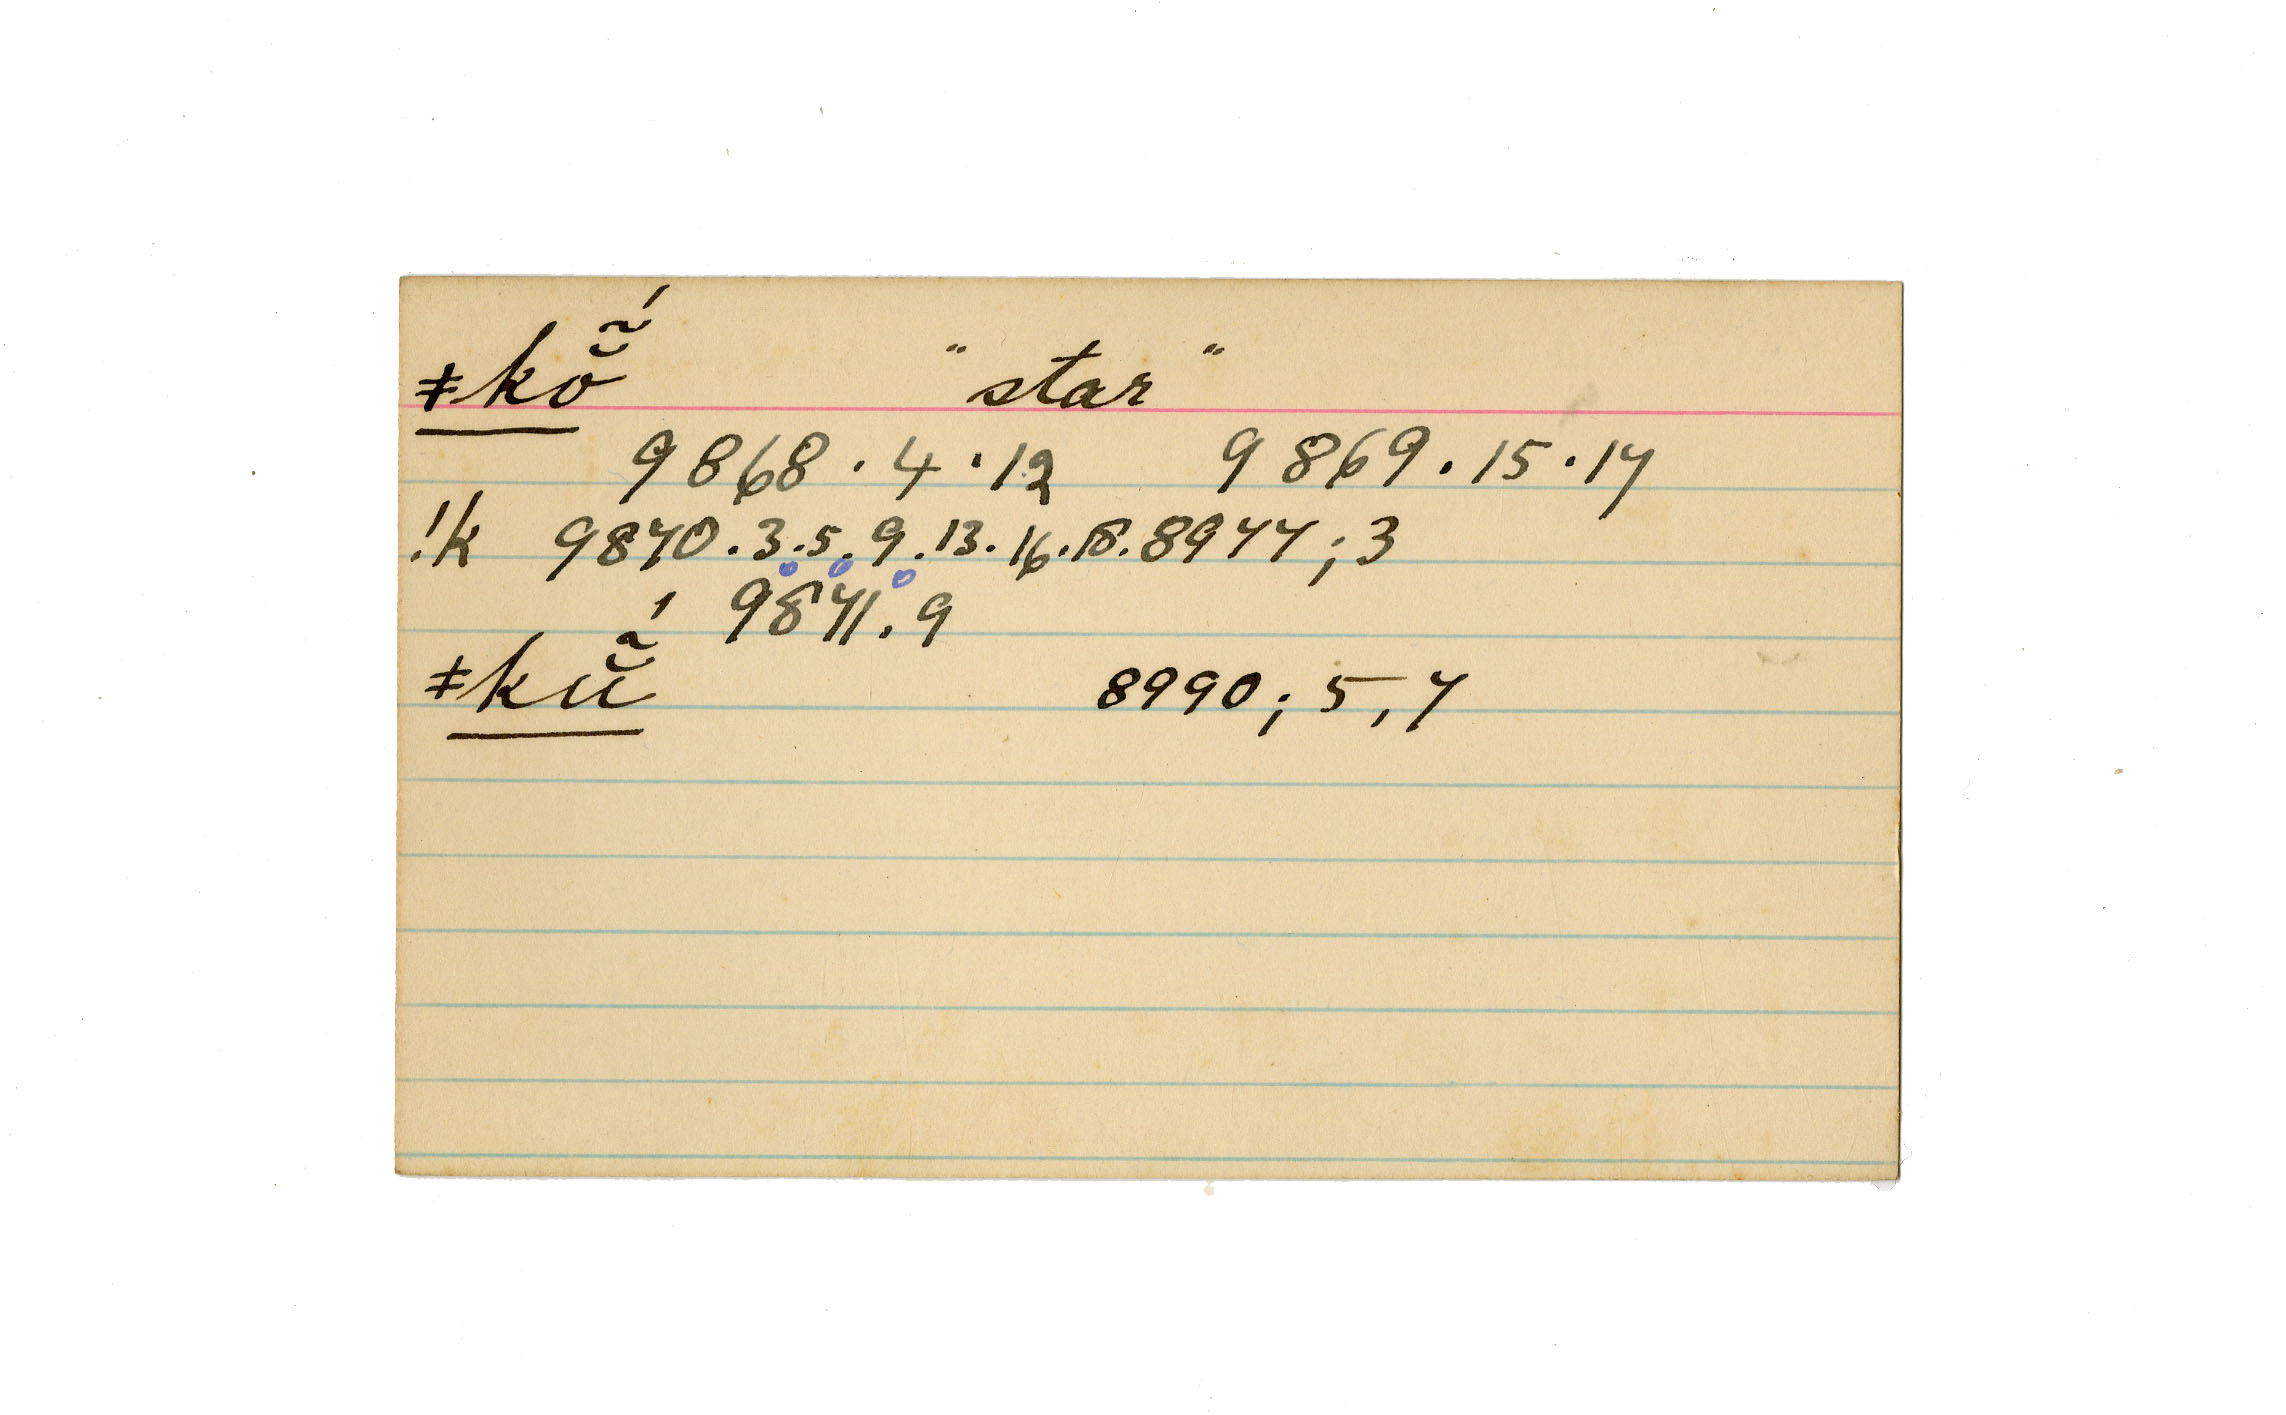 ǂkŏ̃́ "star"
9868 . 4 . 12 9869 . 15 . 17
!k 9870 . 3 . 5 . 9 . 13 . 16 . 18 . 8977 ; 3
9871 . 9
ǂkŭ̃́ 8990 ; 5 , 7